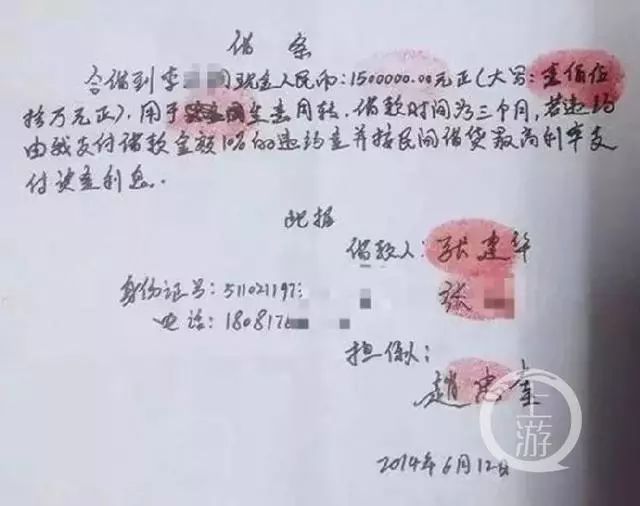 借条
今借到李 现金人民币:1500000.00元正(大写:壹佰伍
拾万元正),用于 生意周转,借款时间为三个月,若违约
由我支付借款金额10%的违约金并按民间借贷最高利率支
付资金利息。
此据
借款人:张建华
张
身份证号:51102119
电话:180817
担保人:
赵忠奎
2014年6月12日
上游